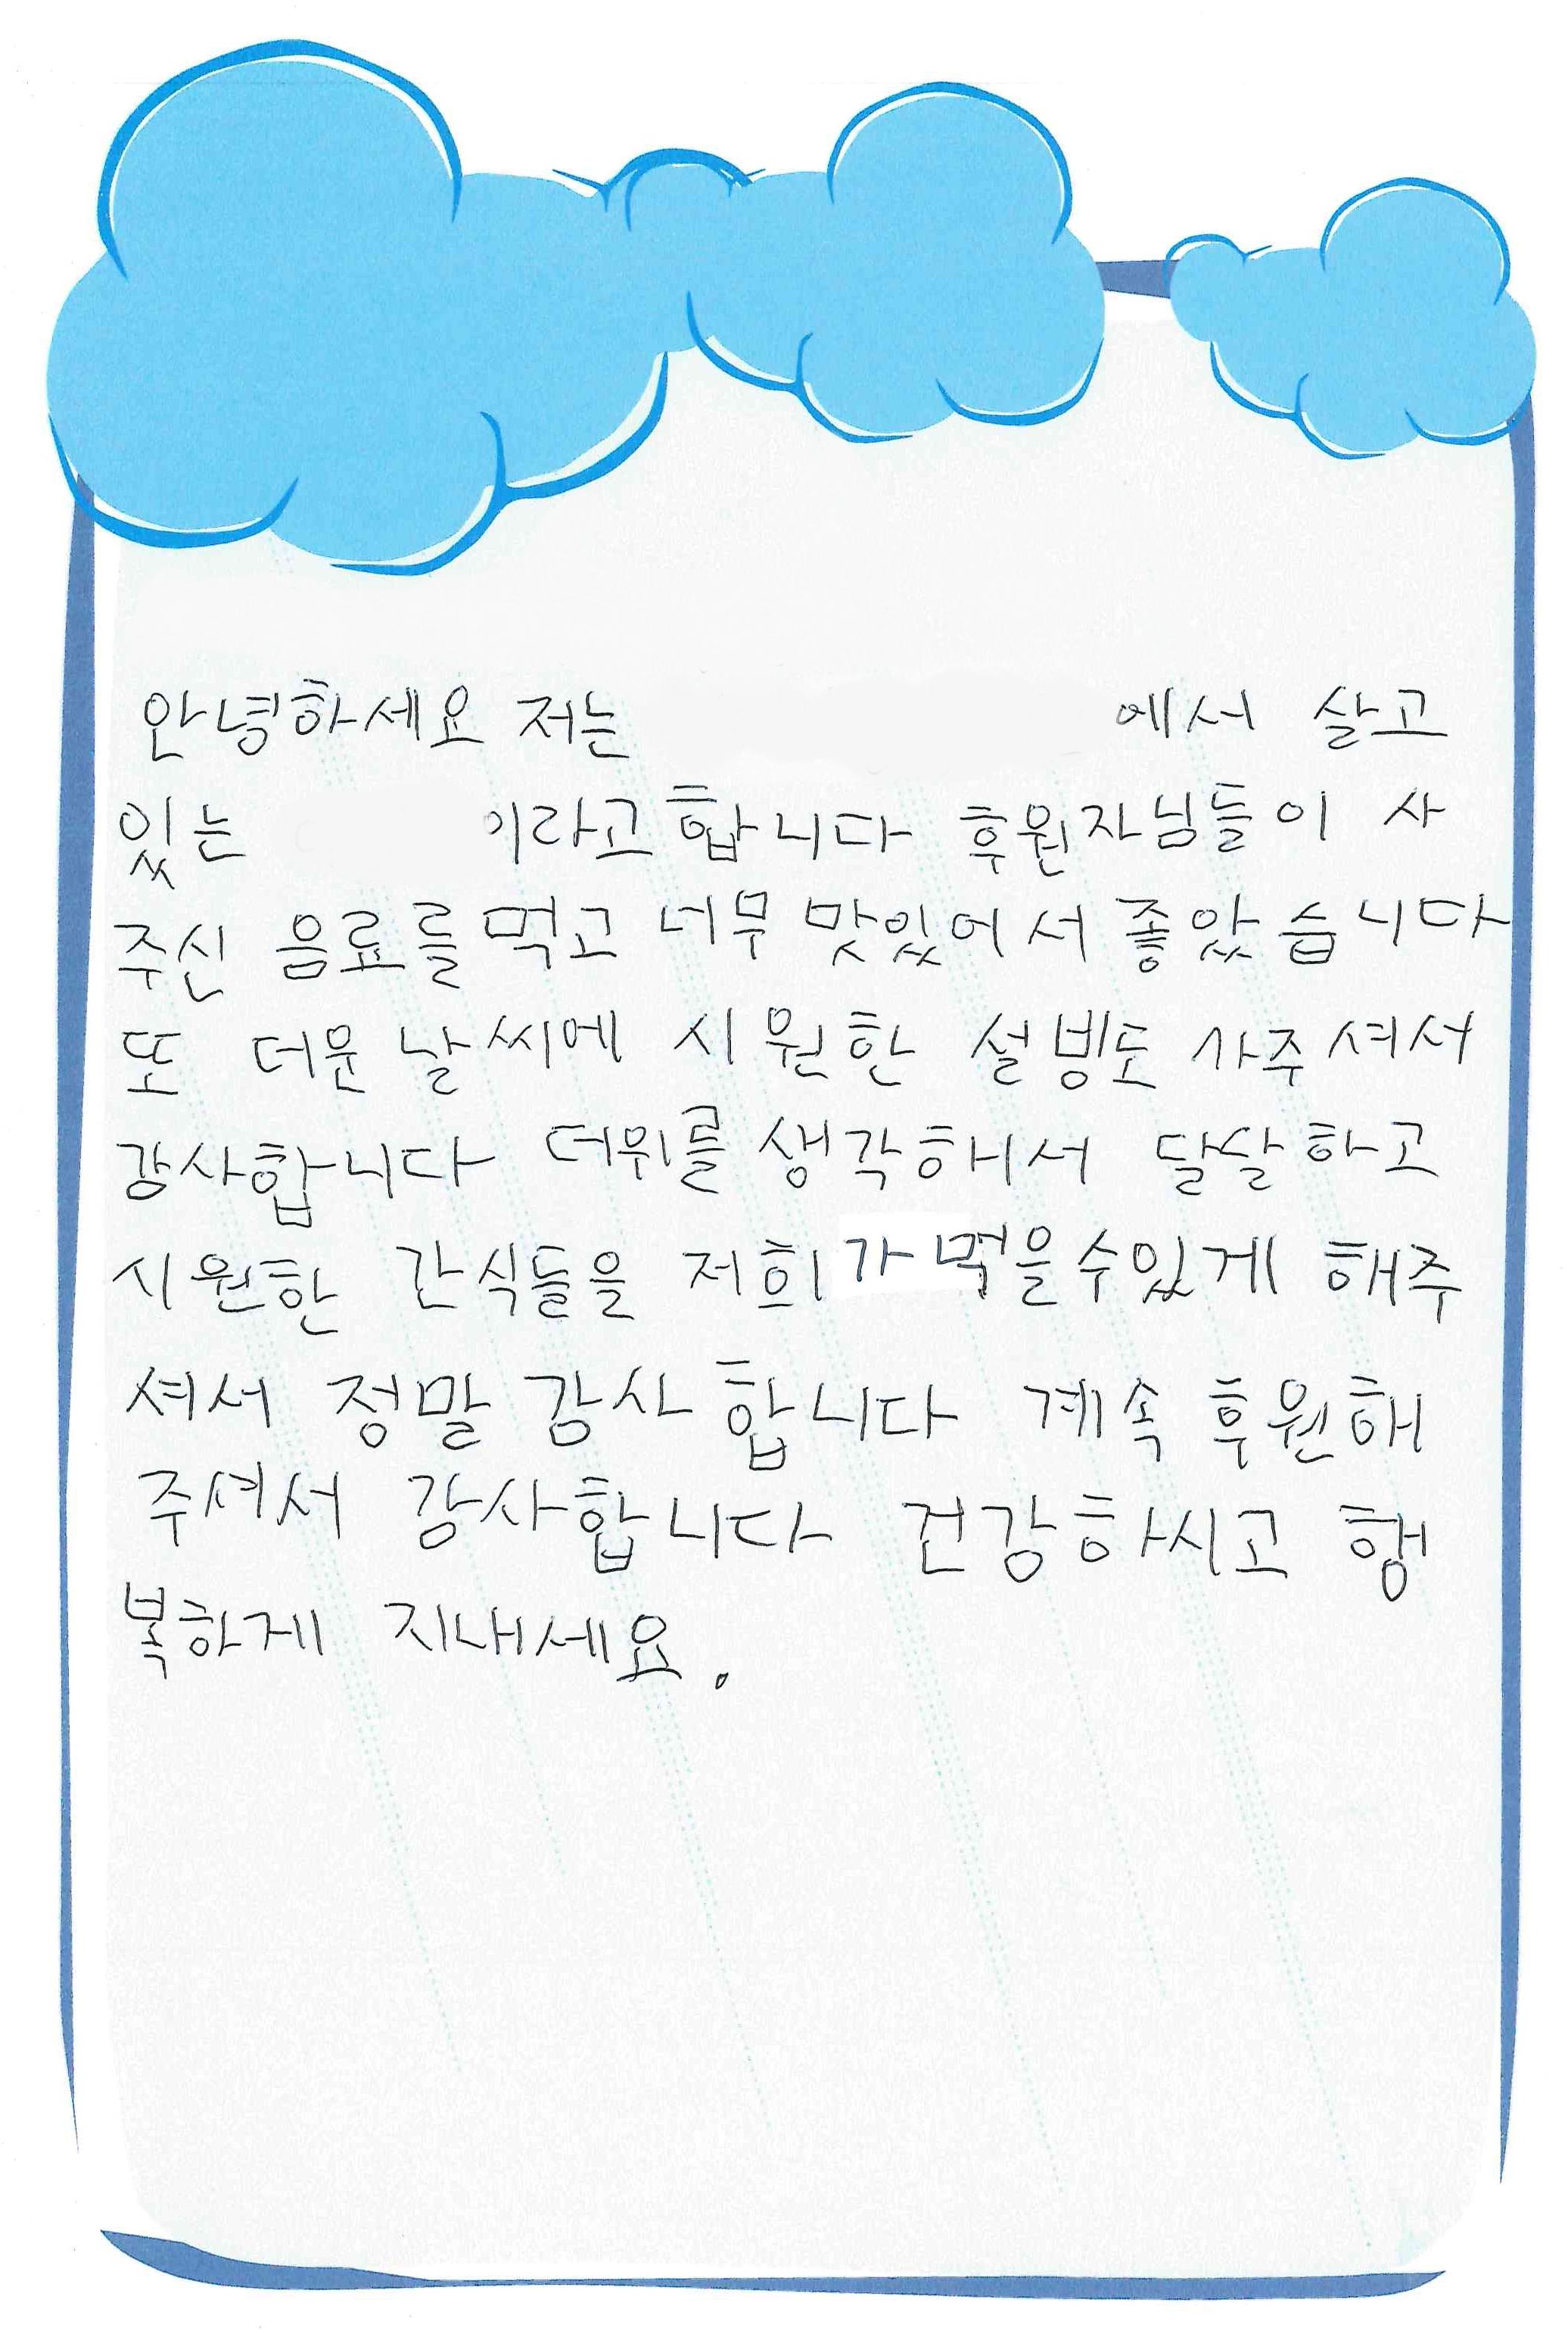 안녕하세요 저는 에서 살고
있는 이라고 합니다 후원자님들이 사
주신 음료를 먹고 너무 맛있어서 좋았습니다
또 더운 날씨에 시원한 설빙도 사주셔서
감사합니다 더위를 생각해서 달달하고
시원한 간식들을 저희가 먹을수있게 해주
셔서 정말 감사합니다 계속 후원해
주셔서 감사합니다 건강하시고 행
복하게 지내세요.